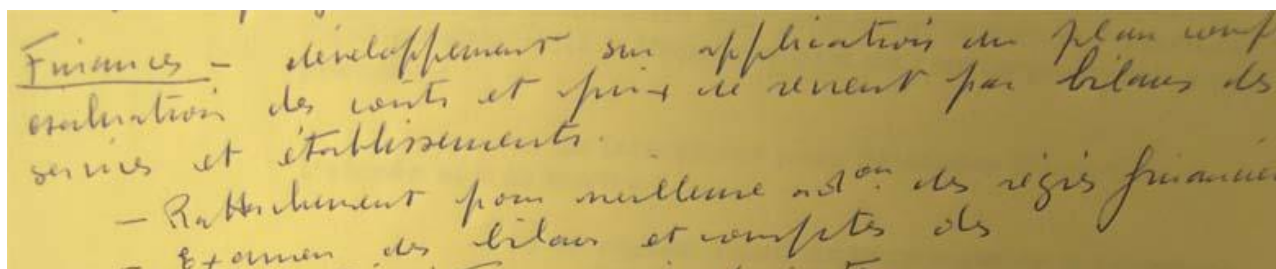 Finances - développement sur application du plan
évaluation des coûts et prix de revient par bilans des
services et établissements.
- Rattachement pour meilleure des régies
- Examen des bilans et comptes des